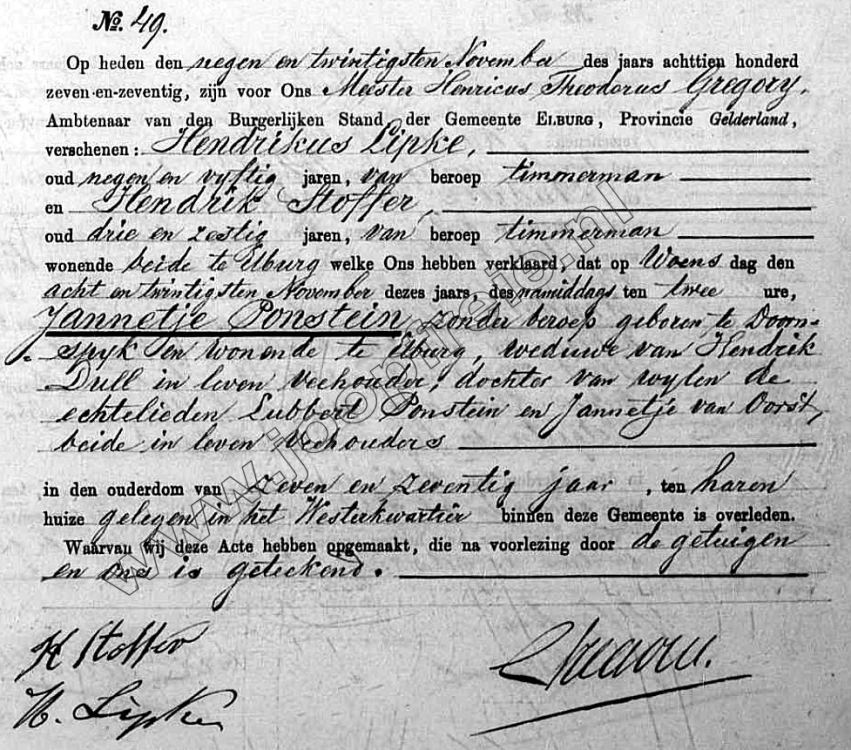 No. 49.
Op heden den negen en twintigsten November des jaars achttien honderd
zeven-en-zeventig, zijn voor Ons Meester Henricus Theodorus Gregory,
Ambtenaar van den Burgerlijken Stand, der Gemeente ELBURG, Provincie Gelderland,
verschenen: Hendrikus Lipke,
oud negen en vyftig jaren, van beroep timmerman
en Hendrik Stoffer,
oud drie en zestig jaren, van beroep timmerman
wonende beide te Elburg welke Ons hebben verklaard, dat op Woensdag den
acht en twintigsten November dezes jaars, des namiddags ten twee ure,
Jannetje Ponstein, zonder beroep geboren te Doorn-
spyk en wonende te Elburg, weduwe van Hendrik
Dull in leven veehouder, dochter van wylen de
echtelieden Lubbert Ponstein en Jannetje van Oorst,
beide in leven veehouders
in den ouderdom van zeven en zeventig jaar, ten haren
huize gelegen in het Westerkwartier binnen deze Gemeente is overleden.
Waarvan wij deze Acte hebben opgemaakt, die na voorlezing door de getuigen
en ons is geteekend.
H Stoffer
H. Lipke
Gregory.
www.jooppirate.nl